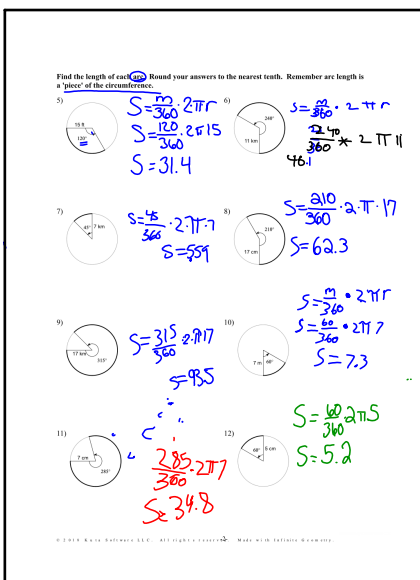 Find the length of each arc. Round your answers to the nearest tenth. Remember arc length is
a 'piece' of the circumference.
5)
15 ft
120°
S = m/360 · 2πr
S = 120/360 · 2π15
S = 31.4
6)
240°
11 km
S = m/360 · 2πr
240/360 * 2π11
46.1
7)
45°
7 km
S = 45/360 · 2·π·7
S = 5.59
8)
210°
17 cm
S = 210/360 · 2·π·17
S = 62.3
9)
17 km
315°
S = 315/360 · 2·π17
S = 93.5
10)
7 m
60°
S = m/360 · 2πr
S = 60/360 · 2π7
S = 7.3
11)
7 cm
285°
285/360 · 2π7
S = 34.8
12)
60°
5 cm
S = 60/360 · 2π5
S = 5.2
© 2010 Kuta Software LLC. All rights reserved. Made with Infinite Geometry.